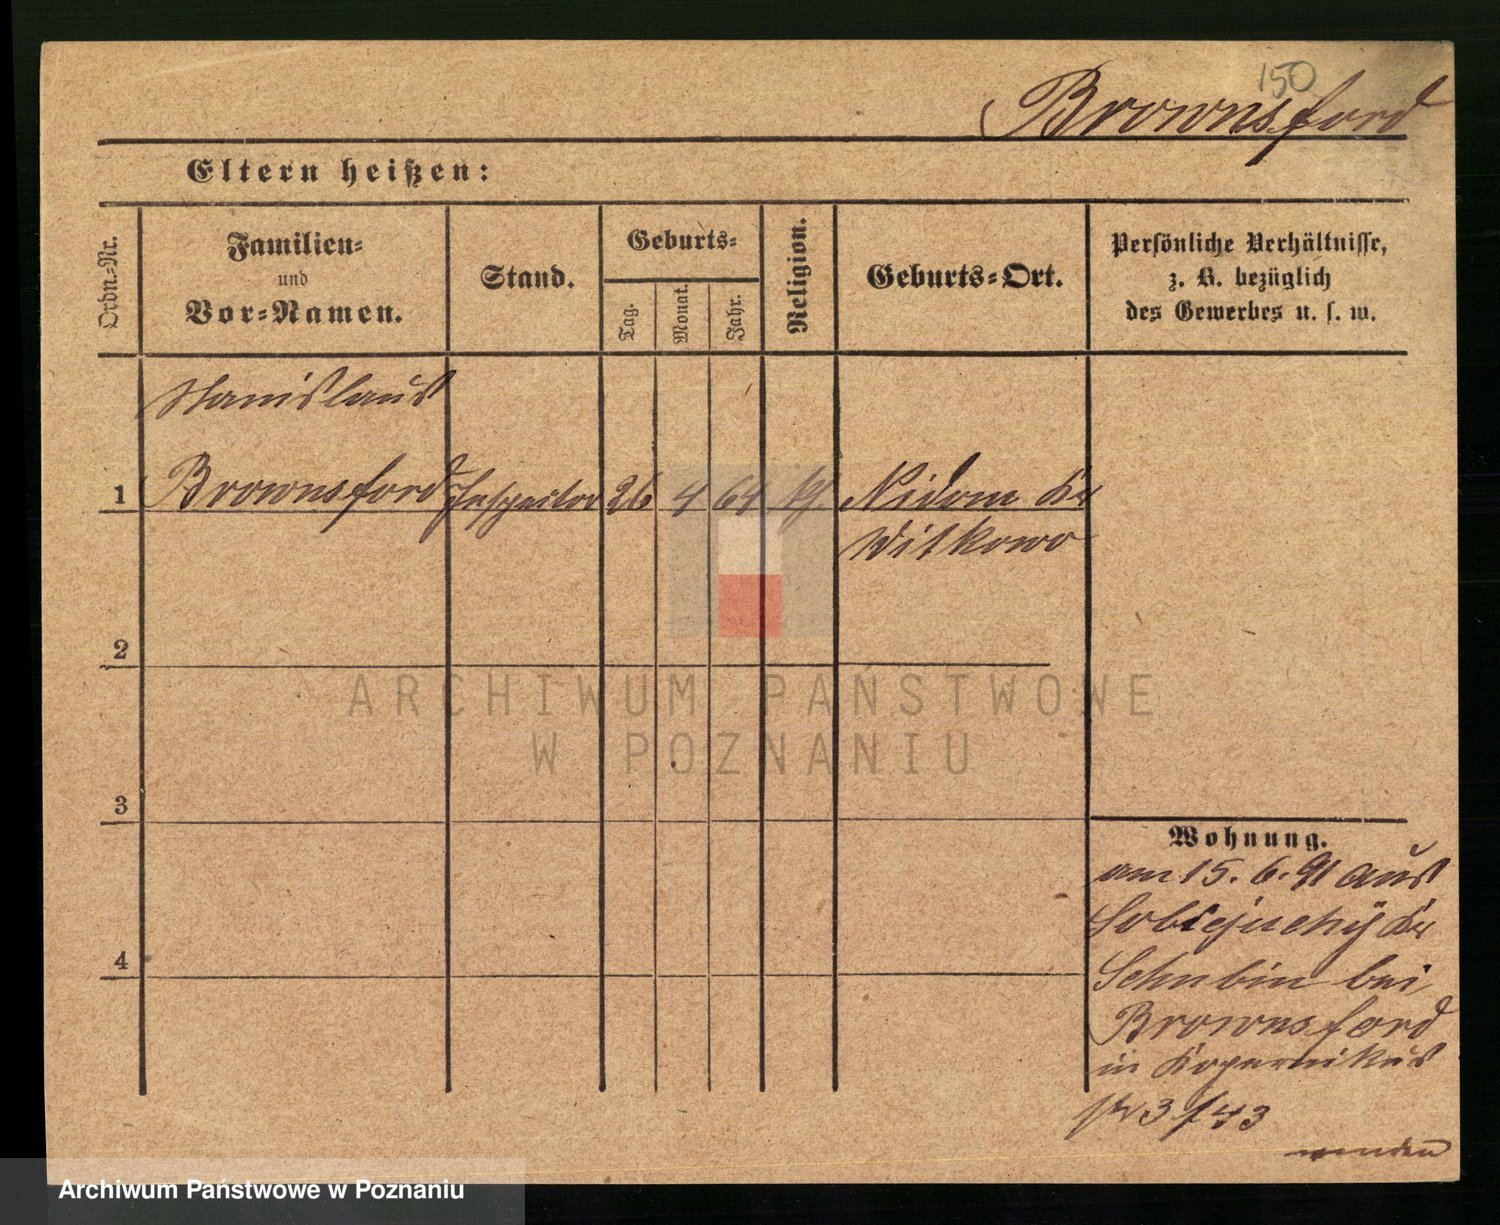 150
Brownsford
Eltern heißen:
Ordn.-Nr.
Familien-
und
Vor-Namen.
Stand.
Geburts-
Tag.
Monat.
Jahr.
Religion.
Geburts-Ort.
Persönliche Verhältnisse,
z. B. bezüglich
des Gewerbes u. s. w.
Stanislaus
1 Brownsford Inspector 26 4 64 k. Nidom Kr
Witkowo
2
3
4
Wohnung.
am 15. 6. 91 aus
Sobiejuchy Kr
Schubin bei
Brownsford
in Kopernikus
str 3 f 43
wenden
ARCHIWUM PAŃSTWOWE
W POZNANIU
Archiwum Państwowe w Poznaniu